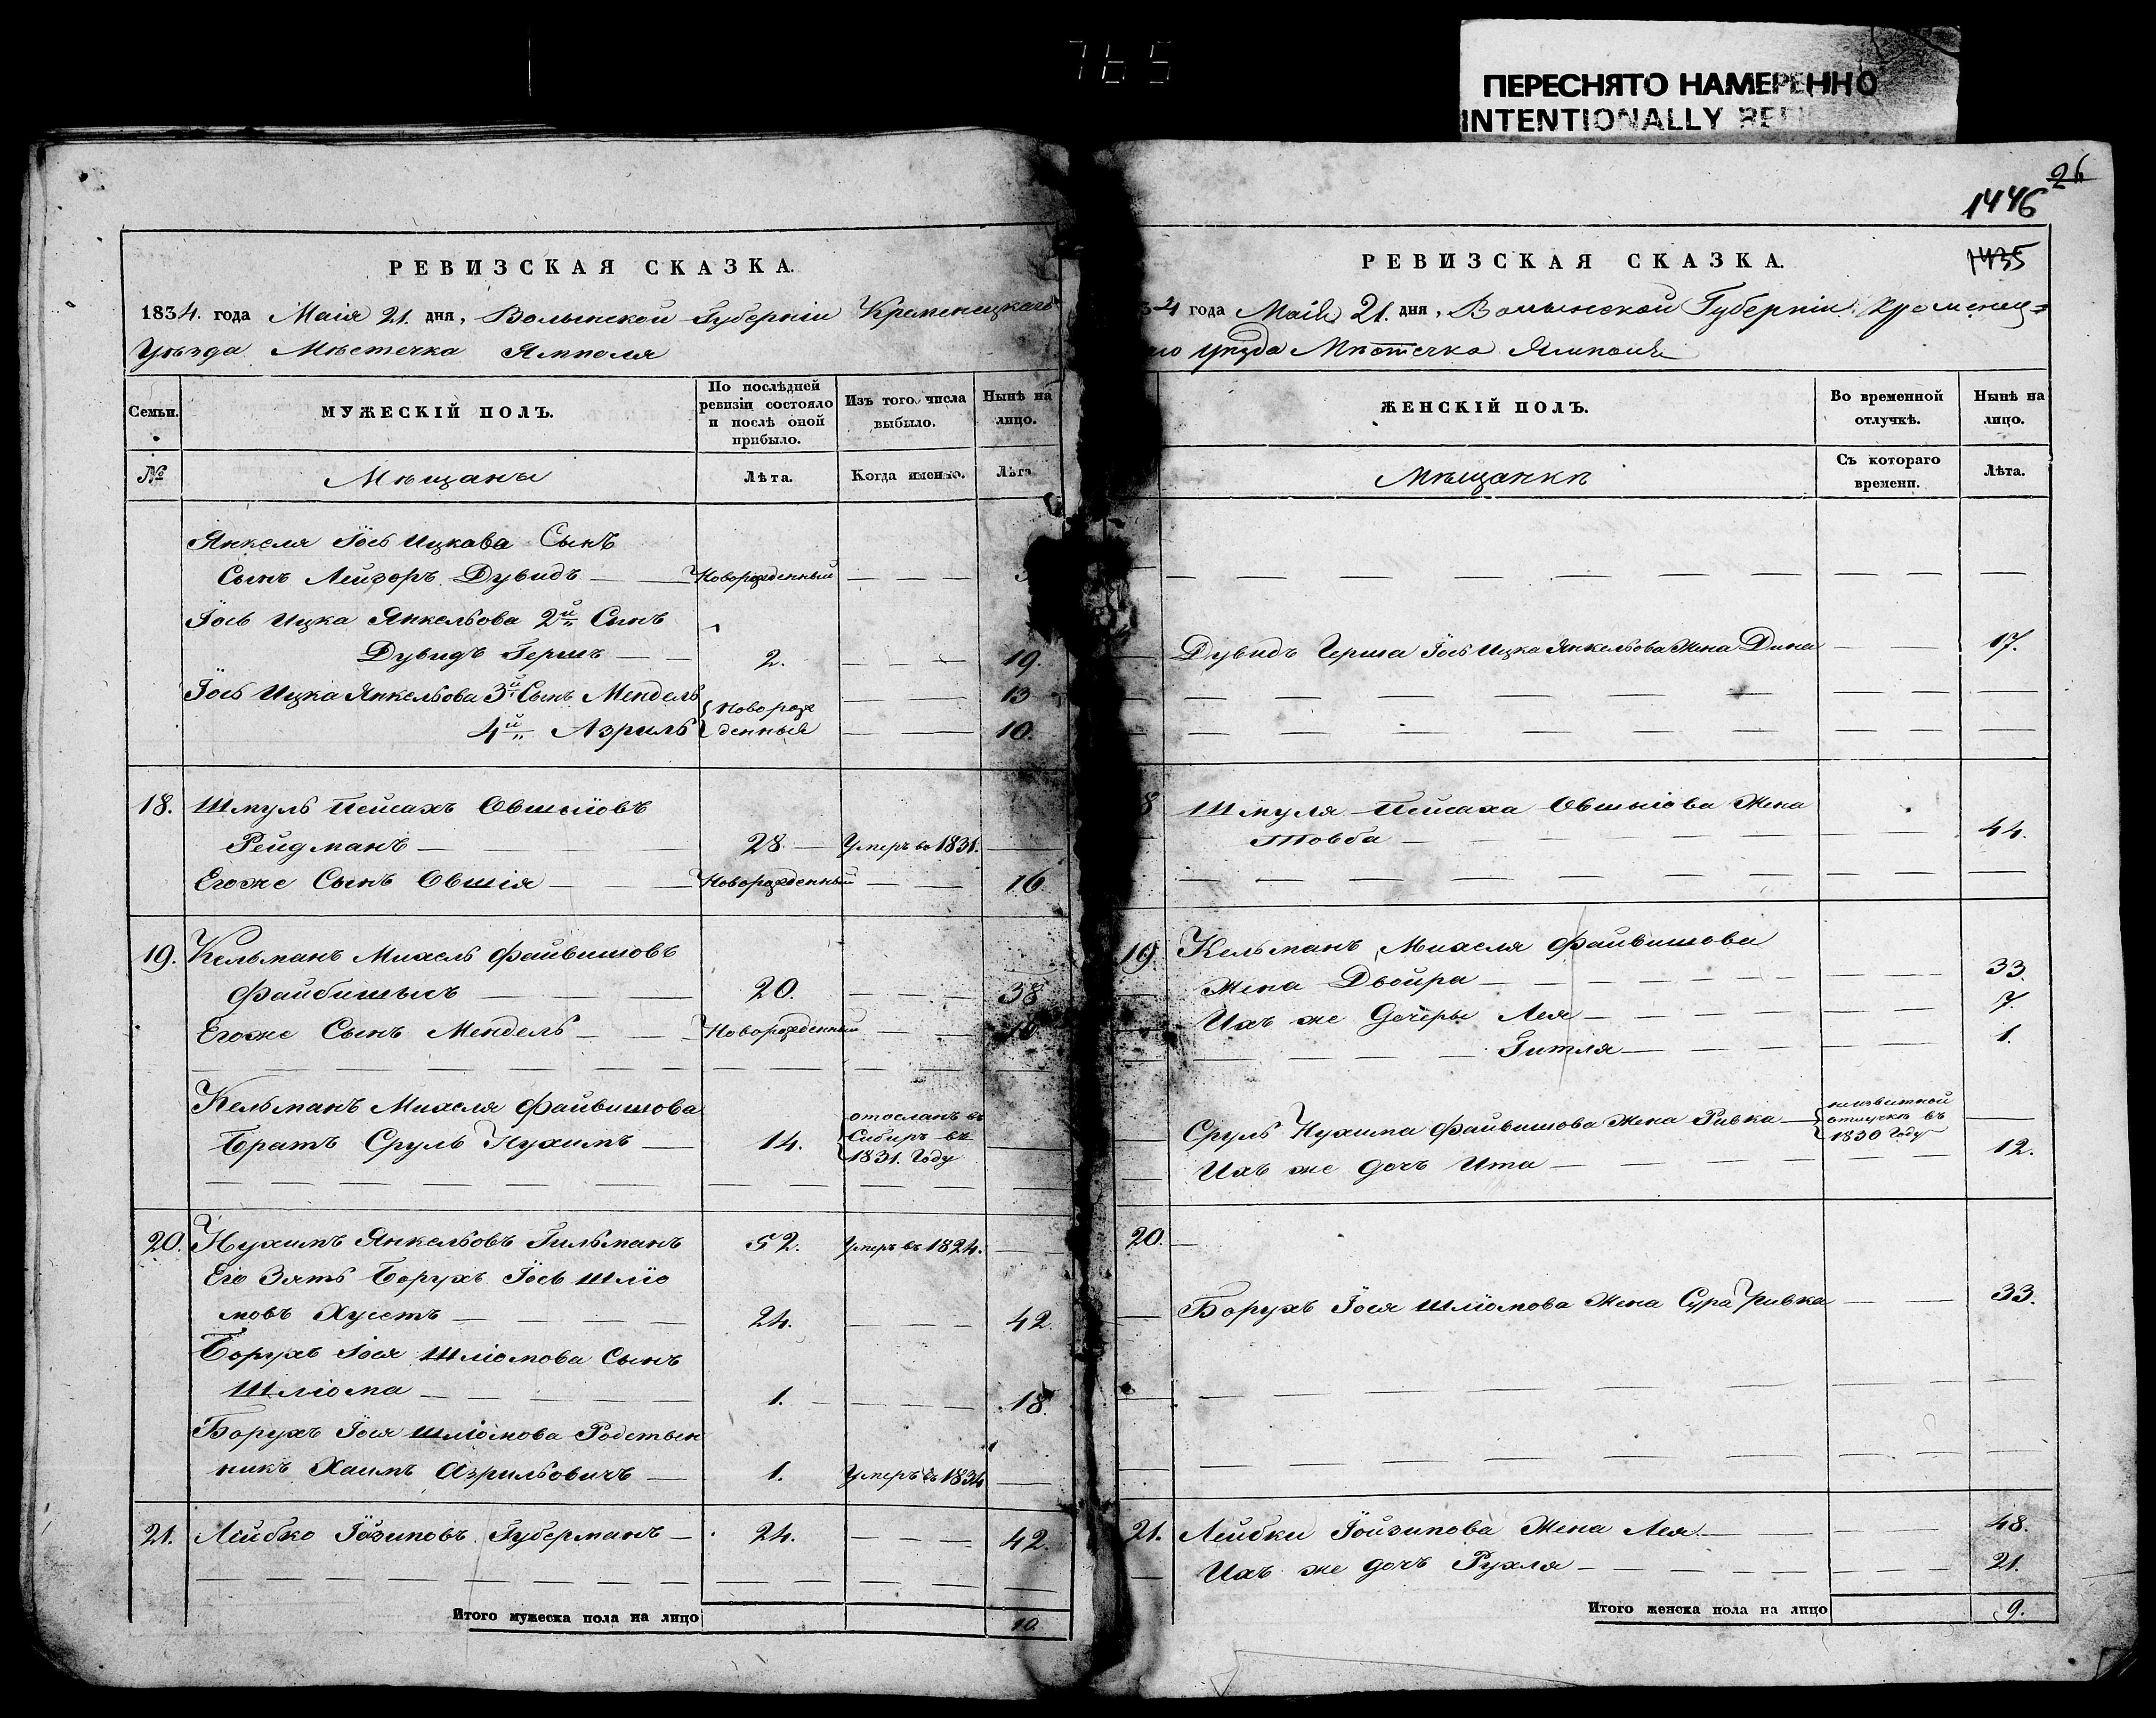 765
ПЕРЕСНЯТО НАМЕРЕННО
INTENTIONALLY
26
1446
1435
РЕВИЗСКАЯ СКАЗКА.
1834. года Маія 21. дня, Волынской Губерніи Кременецкаго
Уѣзда Мѣстечка Ямполя
Семьи.
МУЖЕСКІЙ ПОЛЪ.
По послѣдней ревизіи состояло и послѣ оной прибыло.
Изъ того числа выбыло.
Нынѣ на лицо.
№
Мѣщане
Лѣта.
Когда именно.
Лѣта
Янкеля Іось Ицкова Сынъ
Сынъ Лейзоръ Дувидъ — Новорожденный — — —
Іось Ицка Янкельова 2й Сынъ
Дувидъ Гершъ — — 2. — — 19.
Іось Ицка Янкельова 3й Сынъ Мендель — — 13
4й Азриль Новорожденныя — — 10.
18. Шмуль Пейсахъ Овшыiовъ
Рейдманъ — 28 — Умеръ въ 1831. —
Егоже Сынъ Овшія — Новорожденный — — 16
19. Кельманъ Михель Файвишовъ
Файбишыъ — 20. — — — 38
Егоже Сынъ Мендель — Новорожденный — —
Кельманъ Михеля Файвишова
Братъ Сруль Нухимъ — 14. отосланъ въ Сибирь въ 1831. Году —
20. Нухимъ Янкельовъ Гильманъ 52. Умеръ въ 1824. —
Его Зять Борухъ Іось Шліо
мовъ Хусетъ — 24. — — — 42.
Борухъ Іося Шліомова Сынъ
Шліома — 1. — — — 18.
Борухъ Іося Шліомова Родствен
никъ Хаимъ Азрильовичъ — 1. Умеръ въ 1834 —
21. Лейбко Іойзиповъ Губерманъ — 24. — — 42.
Итого мужеска пола на лицо 10.
РЕВИЗСКАЯ СКАЗКА.
34 года Маія 21. дня, Волынской Губерніи Кременец=
го Уѣзда Мѣстечка Ямполя
ЖЕНСКІЙ ПОЛЪ.
Во временной отлучкѣ.
Нынѣ на лицо.
Мѣщанки
Съ котораго времени.
Лѣта.
Дувидъ Герша Іось Ицка Янкельова Жена Дина — — 17.
8 Шмуля Пейсаха Овшыіова Жена
Товба — — — 44.
19. Кельманъ Михеля Файвишова
Жена Двойра — — — 33.
Ихъ же Дочеры Лея — — — 7.
Гитля — — — 1.
Сруль Нухима Файвишова Жена Ривка — неизвитной отлучкѣ въ 1830 Году —
Ихъ же дочъ Ита — — — 12.
20. —
Борухъ Іося Шліомова Жена Сура Ривка — — 33.
21. Лейбки Іойзипова Жена Лея — — 48.
Ихъ же дочъ Рухля — — — 21.
Итого женска пола на лицо 9.